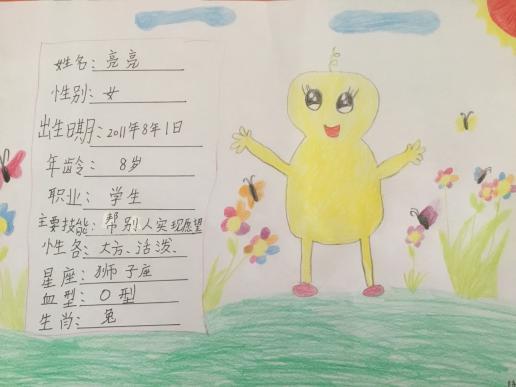 姓名：亮亮
性别：女
出生日期：2011年8年1日
年龄：8岁
职业：学生
主要技能：帮别人实现愿望
性各：大方、活泼、
星座：狮子座
血型：O型
生肖：兔